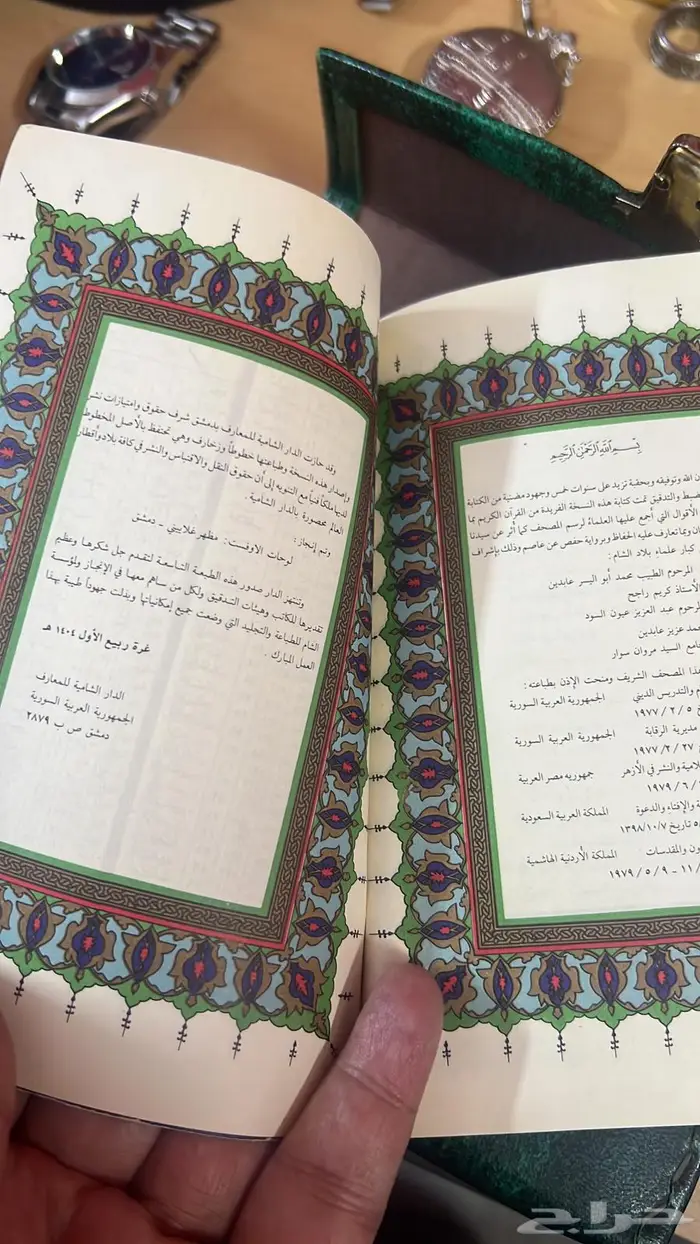 بِسْمِ اللَّهِ الرَّحْمٰنِ الرَّحِيمِ
ن الله وتوفيقه وبحقبة تزيد على سنوات خمس وجهود مضنية من الكتابة
بط والتدقيق تمت كتابة هذه النسخة الفريدة من القرآن الكريم بما
الأقوال التي أجمع عليها العلماء لرسم المصحف كما أثر عن سيدنا
ن وبما تعارف عليه الحفاظ وبرواية حفص عن عاصم وذلك بإشراف
كبار علماء بلاد الشام :
المرحوم الطبيب محمد أبو اليسر عابدين
أستاذ كريم راجح
حوم عبد العزيز عيون السود
محمد عزيز عابدين
جامع السيد مروان سوار
هذا المصحف الشريف ومنحت الإذن بطباعته :
م والتدريس الديني الجمهورية العربية السورية
٥ / ٢ / ١٩٧٧
مديرية الرقابة الجمهورية العربية السورية
٢٧ / ٢ / ١٩٧٧
لامية والنشر في الأزهر جمهوريه مصر العربية
/ ٦ / ١٩٧٩
ة والإفتاء والدعوة المملكة العربية السعودية
تاريخ ١٣٩٨/١٠/٧
ون والمقدسات المملكة الأردنية الهاشمية
١١ - ٩ / ٥ / ١٩٧٩
وقد حازت الدار الشامية للمعارف بدمشق شرف حقوق وامتيازات نشر
وإصدار هذه النسخة وطباعتها خطوطاً وزخارف وهي تحتفظ بالأصل المخطوط
لديها ملكاً فنياً مع التنويه إلى أن حقوق النقل والاقتباس والنشر في كافة بلاد وأقطار
العالم محصورة بالدار الشامية .
وتم إنجاز :
لوحات الاوفست : مظهر غلاييني - دمشق
وتنتهز الدار صدور هذه الطبعة التاسعة لتقدم جل شكرها وعظيم
تقديرها للكاتب وهيئات التدقيق ولكل من ساهم معها في الإنجاز ولمؤسسة
الشام للطباعة والتجليد التي وضعت جميع إمكانياتها وبذلت جهوداً طيبة بهذا
العمل المبارك .
غرة ربيع الأول ١٤٠٤ هـ
الدار الشامية للمعارف
الجمهورية العربية السورية
دمشق ص ب ٢٨٧٩
حراج